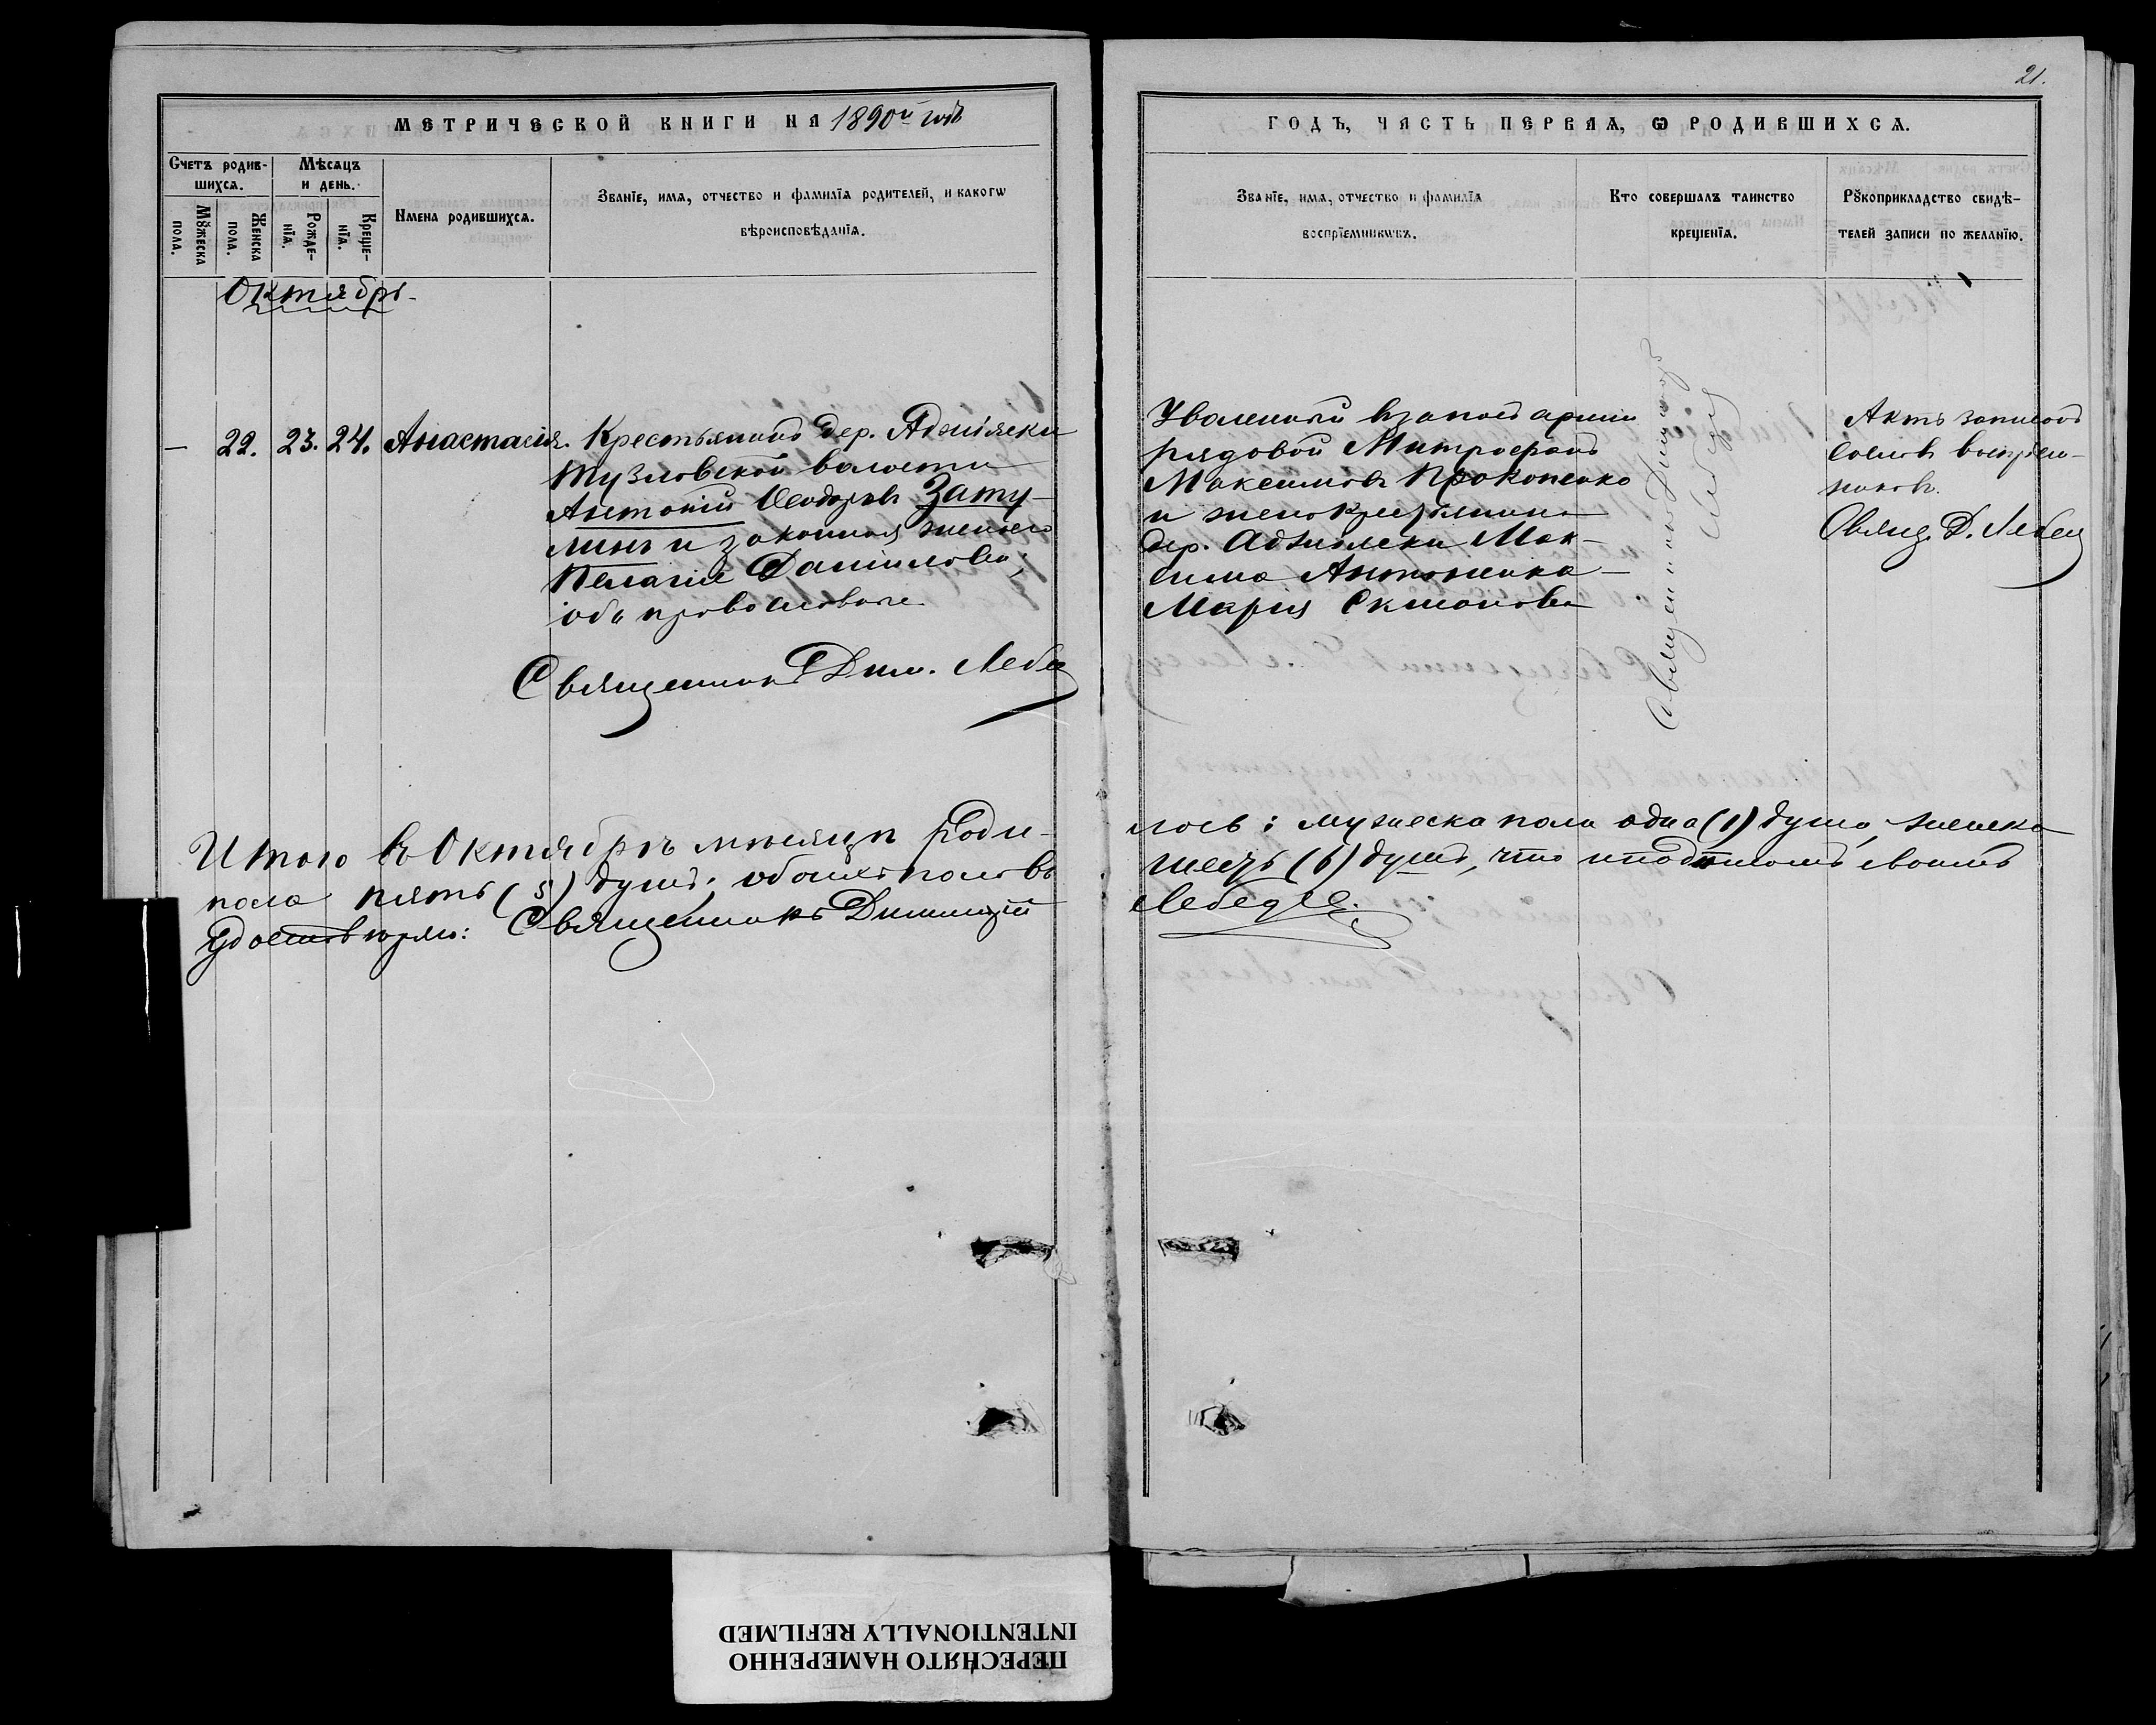 21.
МЕТРИЧЕСКОЙ КНИГИ НА 1890й годъ
ГОДЪ, ЧАСТЬ ПЕРВАЯ, Ѡ РОДИВШИХСѦ.
Счетъ родив-
шихсѧ.
Мꙋжеска
пола.
Женска
пола.
Мѣсѧцъ
и день.
Рожде-
нїѧ.
Креще-
нїѧ.
Имена родившихсѧ.
Званїе, имѧ, отчество и фамилїѧ родителей, и какогѡ
вѣроисповѣданїѧ.
Званїе, имѧ, отчество и фамилїѧ
воспрїемникѡвъ.
Кто совершалъ таинство
крещенїѧ.
Рꙋкоприкладство свидѣ-
телей записи по желанїю.
Октябрь
— 22. 23. 24. Анастасія.
Крестьянинъ дер. Аджіяски
Тузловской волости
Антоній Ѳеодоровъ Зату-
линъ и законная жена его
Пелагія Даніилова;
оба православные.
Священникъ Дим. Лебед
Уволенный въ запасъ арміи
рядовой Митрофанъ
Максимовъ Прокопенко
и жена крестьянина
дер. Аджіяски Мак-
сима Антоненка
Марія
Священникъ Димитрій
Лебедев
Актъ записанъ
воспріем-
никовъ.
Свящ. Д. Лебед
Итого въ Октябрѣ мѣсяцѣ роди-
лось: мужеска пола одна (1) душа, женска
пола пять (5) душъ; обоихъ половъ
шесть (6) душъ, что и подписомъ своимъ
удостовѣряю: Священникъ Димитрій
Лебедев.
ПЕРЕСНЯТО НАМЕРЕННО
INTENTIONALLY REFILMED